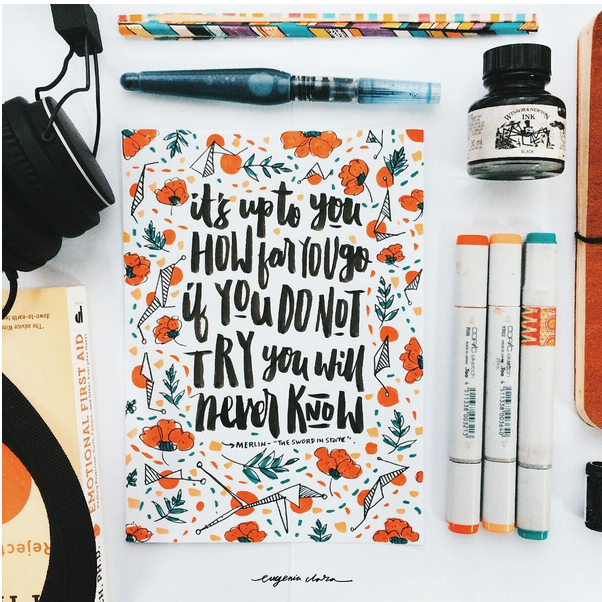 it's up to you
HOW far YOU go
if YOU DO NOT
TRY you will
never KNOW
MERLIN - "THE SWORD IN STONE"
WINSOR & NEWTON
INK
BLACK
COPIC
sketch
COPIC
sketch
EMOTIONAL FIRST AID
The advice
down-to-earth
Reject
PH.D.
eugenia clara